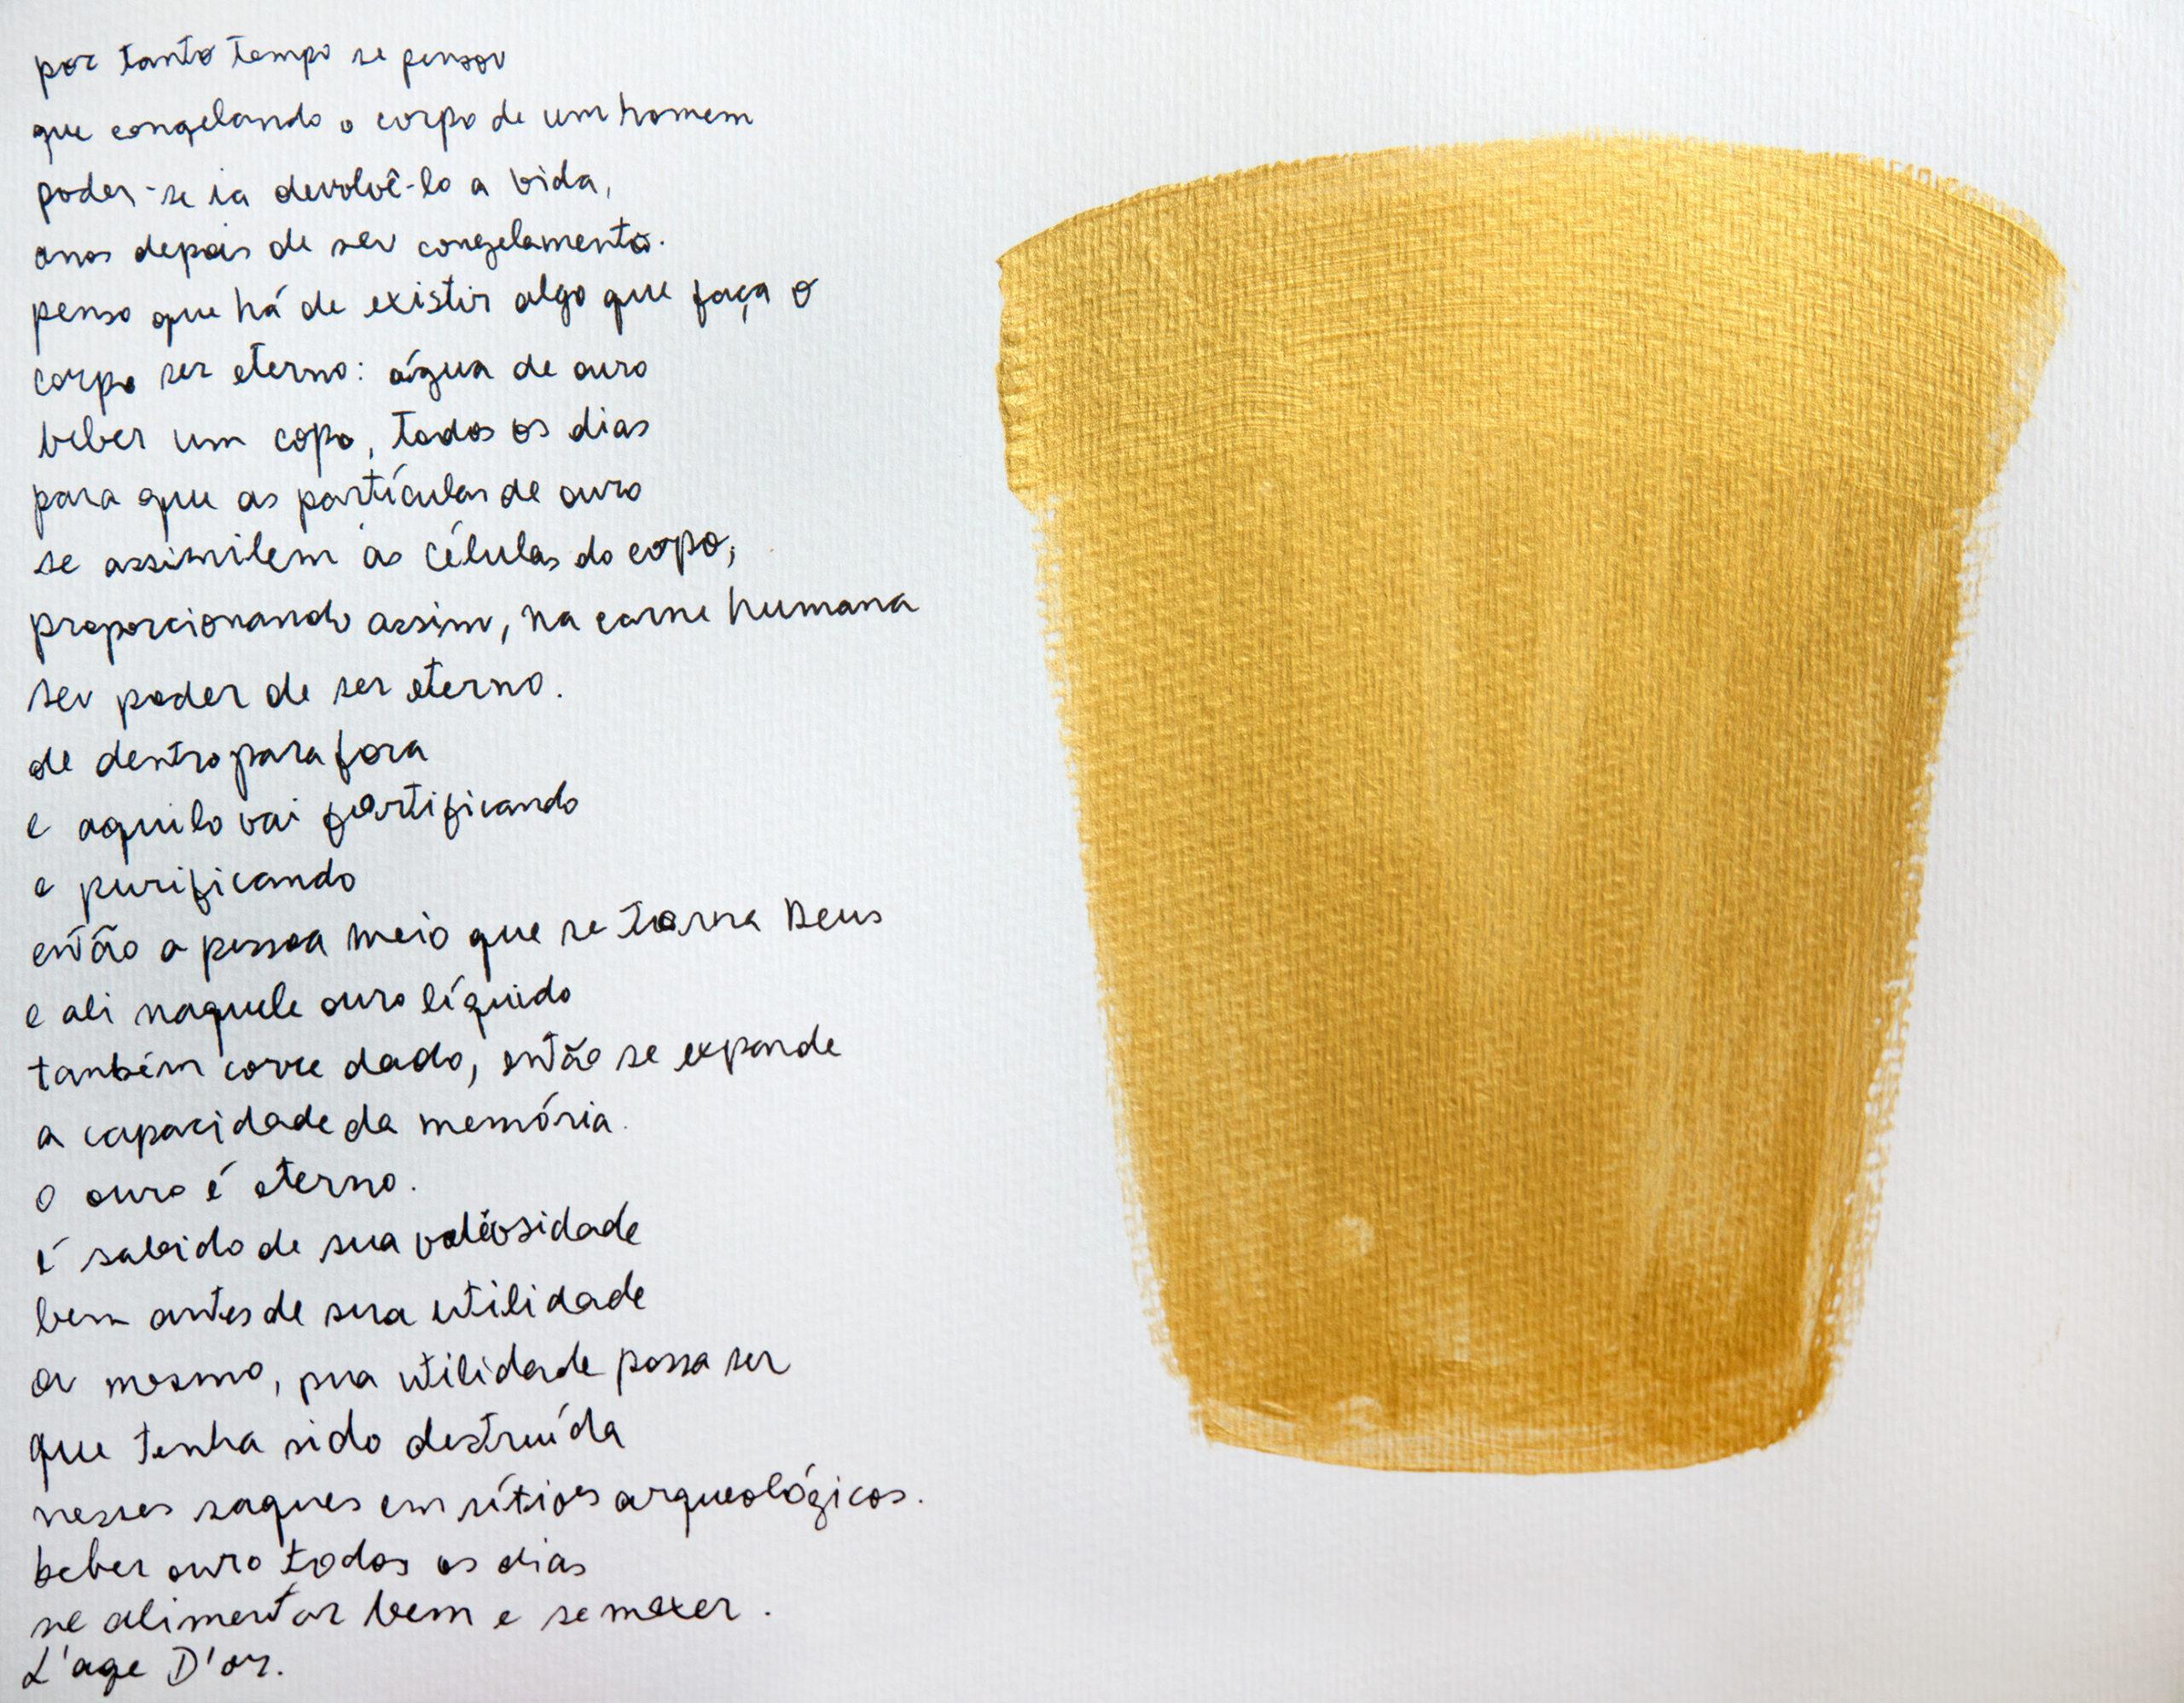 por tanto tempo se pensou
que congelando o corpo de um homem
poder-se ia devolvê-lo a vida,
anos depois de seu congelamento.
penso que há de existir algo que faça o
corpo ser eterno: água de ouro
beber um copo, todos os dias
para que as partículas de ouro
se assimilem às células do copo,
proporcionando assim, na carne humana
seu poder de ser eterno.
de dentro para fora
e aquilo vai fortificando
e purificando
então a pessoa meio que se torna Deus
e ali naquele ouro líquido
também corre dado, então se expande
a capacidade da memória.
o ouro é eterno.
é sabido de sua valiosidade
bem antes de sua utilidade
ou mesmo, sua utilidade possa ser
que tenha sido destruída
nesses saques em sítios arqueológicos.
beber ouro todos os dias
se alimentar bem e se mexer.
L'age D'or.